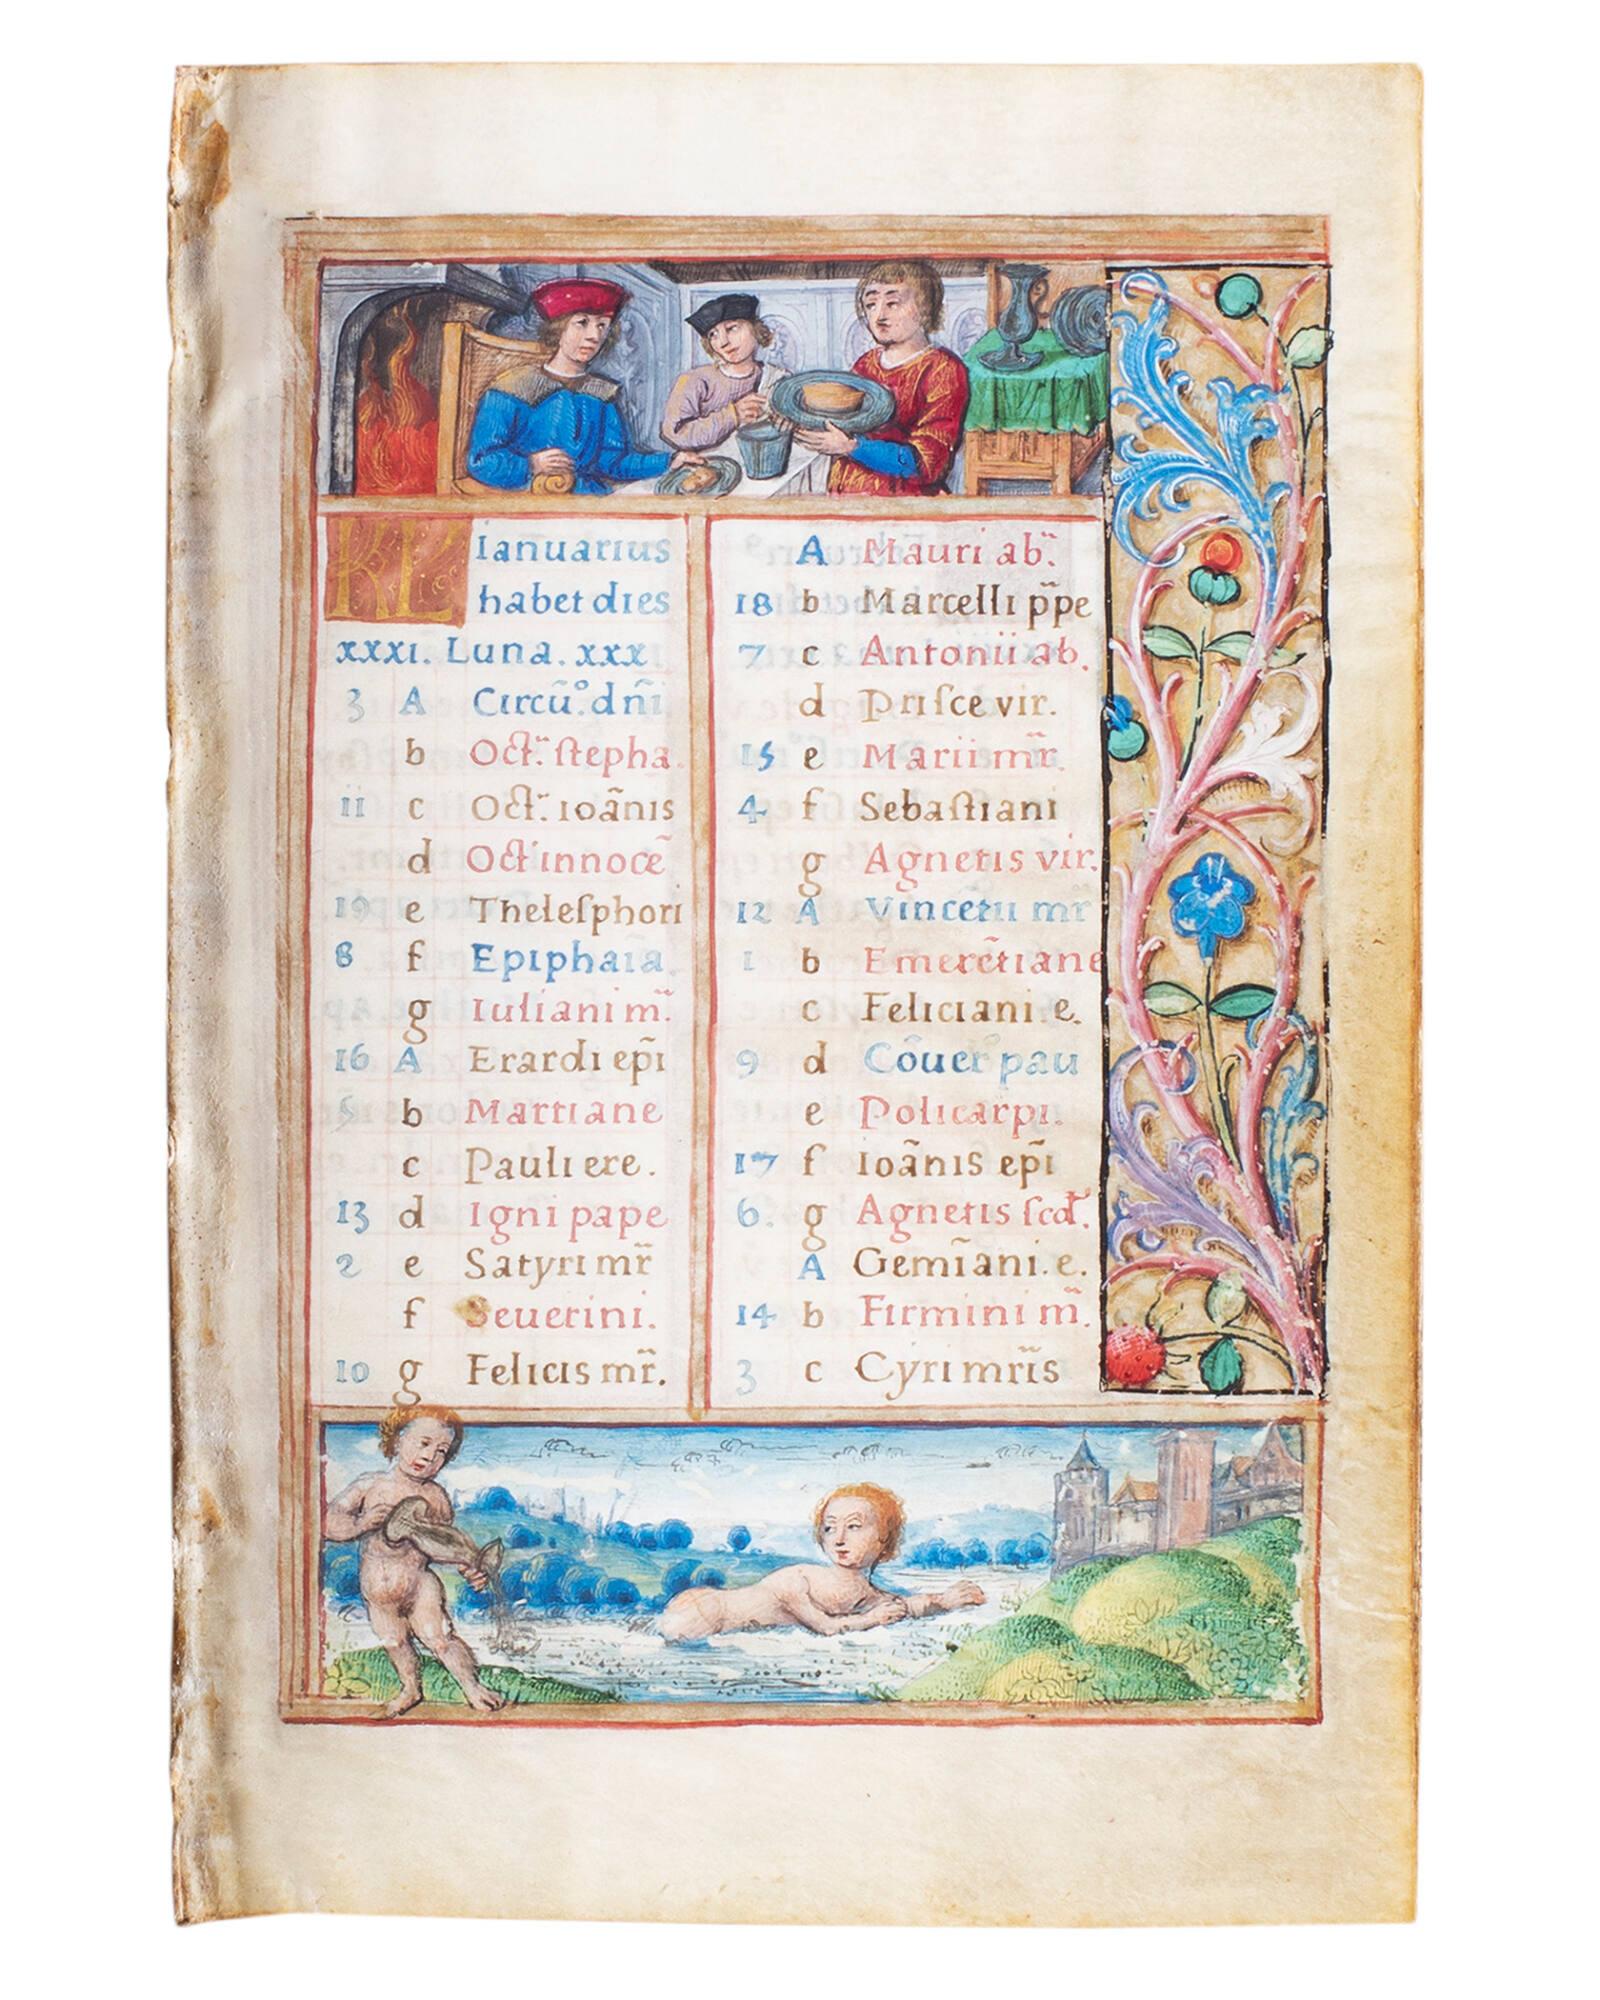 KL Ianuarius
habet dies
xxxi. Luna. xxx
3 A Circũ.° dñi
b Oct.̃ ſtepha.
ii c Oct.̃ ioãnis
d Oct' innocẽ
19 e Theleſphori
8 f Epiphaĩa.
g Iuliani m̃.
16 A Erardi ep̃i
5 b Martiane
c Pauli ere.
13 d Igni pape
2 e Satyri mr̃
f Seuerini.
10 g Felicis mr̃.
A Mauri ab̃.
18 b Marcelli p̃pe
7 c Antonii ab.
d Priſce vir.
15 e Marii mr̃.
4 f Sebaſtiani
g Agnetis vir.
12 A Vincetii mr̃
1 b Emerẽtiane
c Feliciani. e.
9 d Cõuer̃ pau
e Policarpi.
17 f Ioãnis ep̃i
6. g Agnetis ſcd̃.
A Gemĩani. e.
14 b Firmini m̃.
3 c Cyri mr̃is